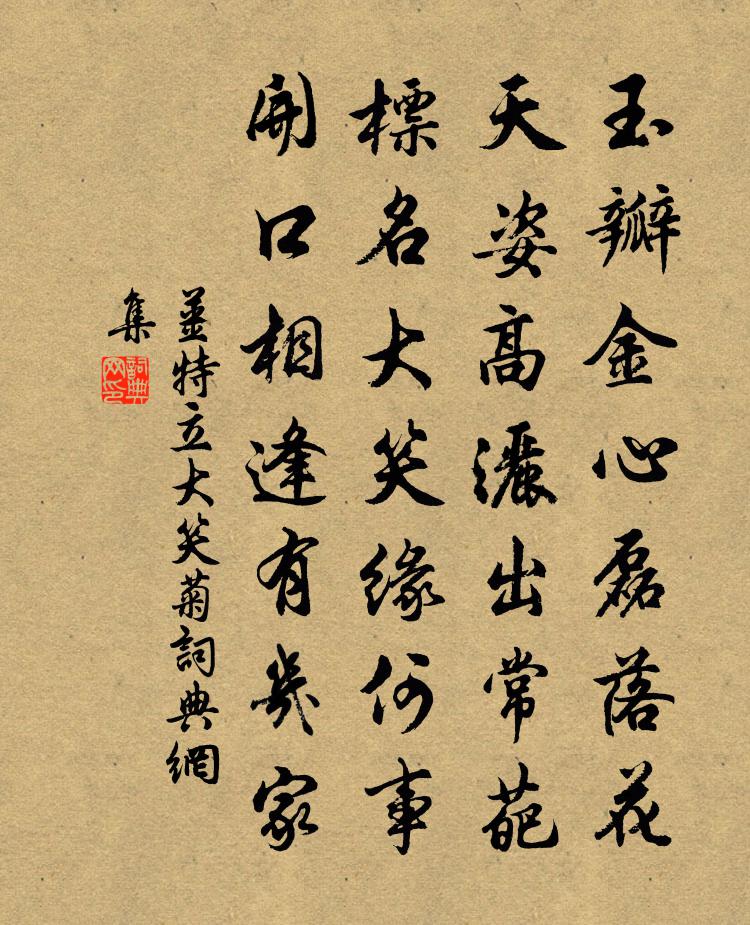 玉瓣金心磊落花
天姿高灑出常葩
標名大笑緣何事
開口相逢有幾家
薑特立大笑菊詞典網
集
詞典
网印